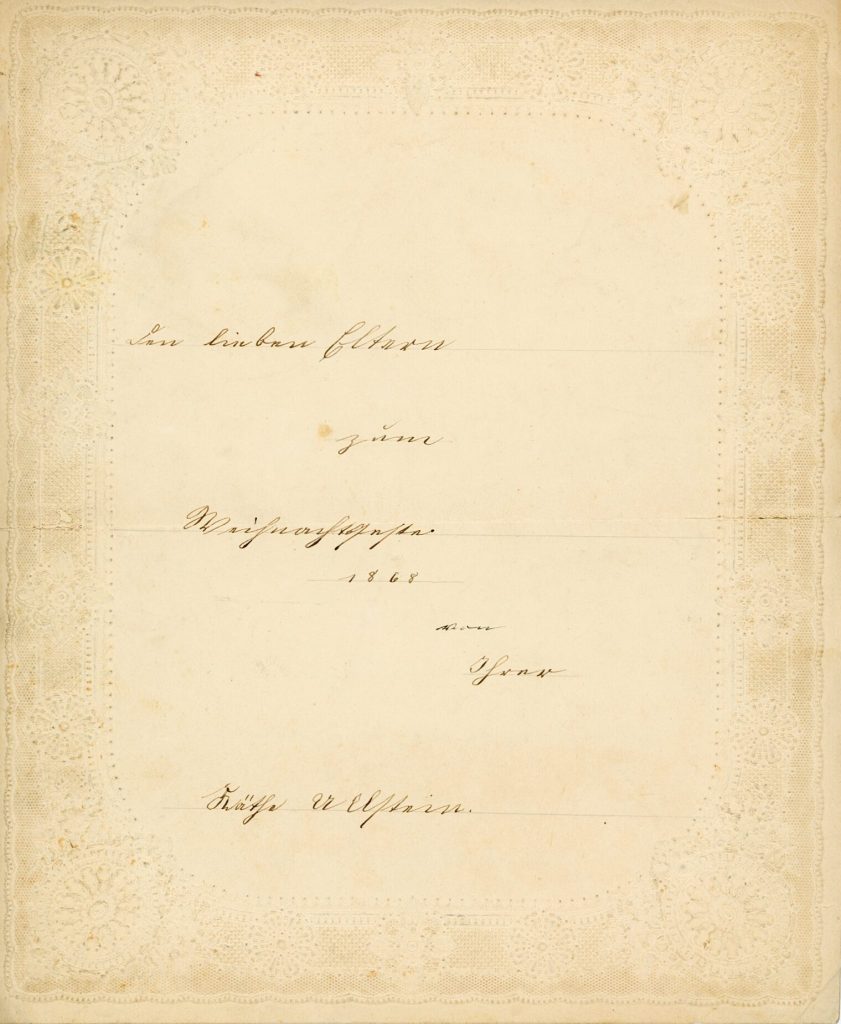 Den lieben Eltern
zum
Weihnachtsfeste
1868
von
Ihrer
Käthe Ullstein.